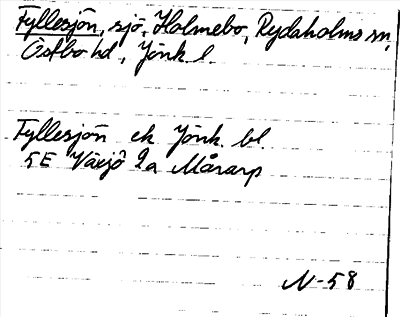 Fyllesjön, sjö, Holmebo, Rydaholms sn,
Östbo hd, Jönk l.
Fyllesjön ek Jönk. bl
5E Växjö 9a Mårarp
N-58